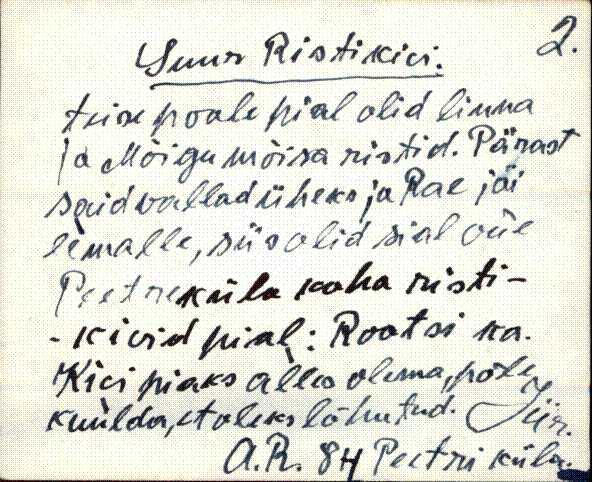 2.
Suur Ristikivi.
teise poole pial olid linna
ja Mõigu mõisa ristid. Pärast
said vallad üheks ja Rae jäi
eemalle, siis olid sial
Peetreküla koha risti-
-kivid pial: Rootsi ka.
Kivi piaks alles olema, põle
kuulda, et oleks lõhutud. Jür.
A.R. 84 Peetri küla.